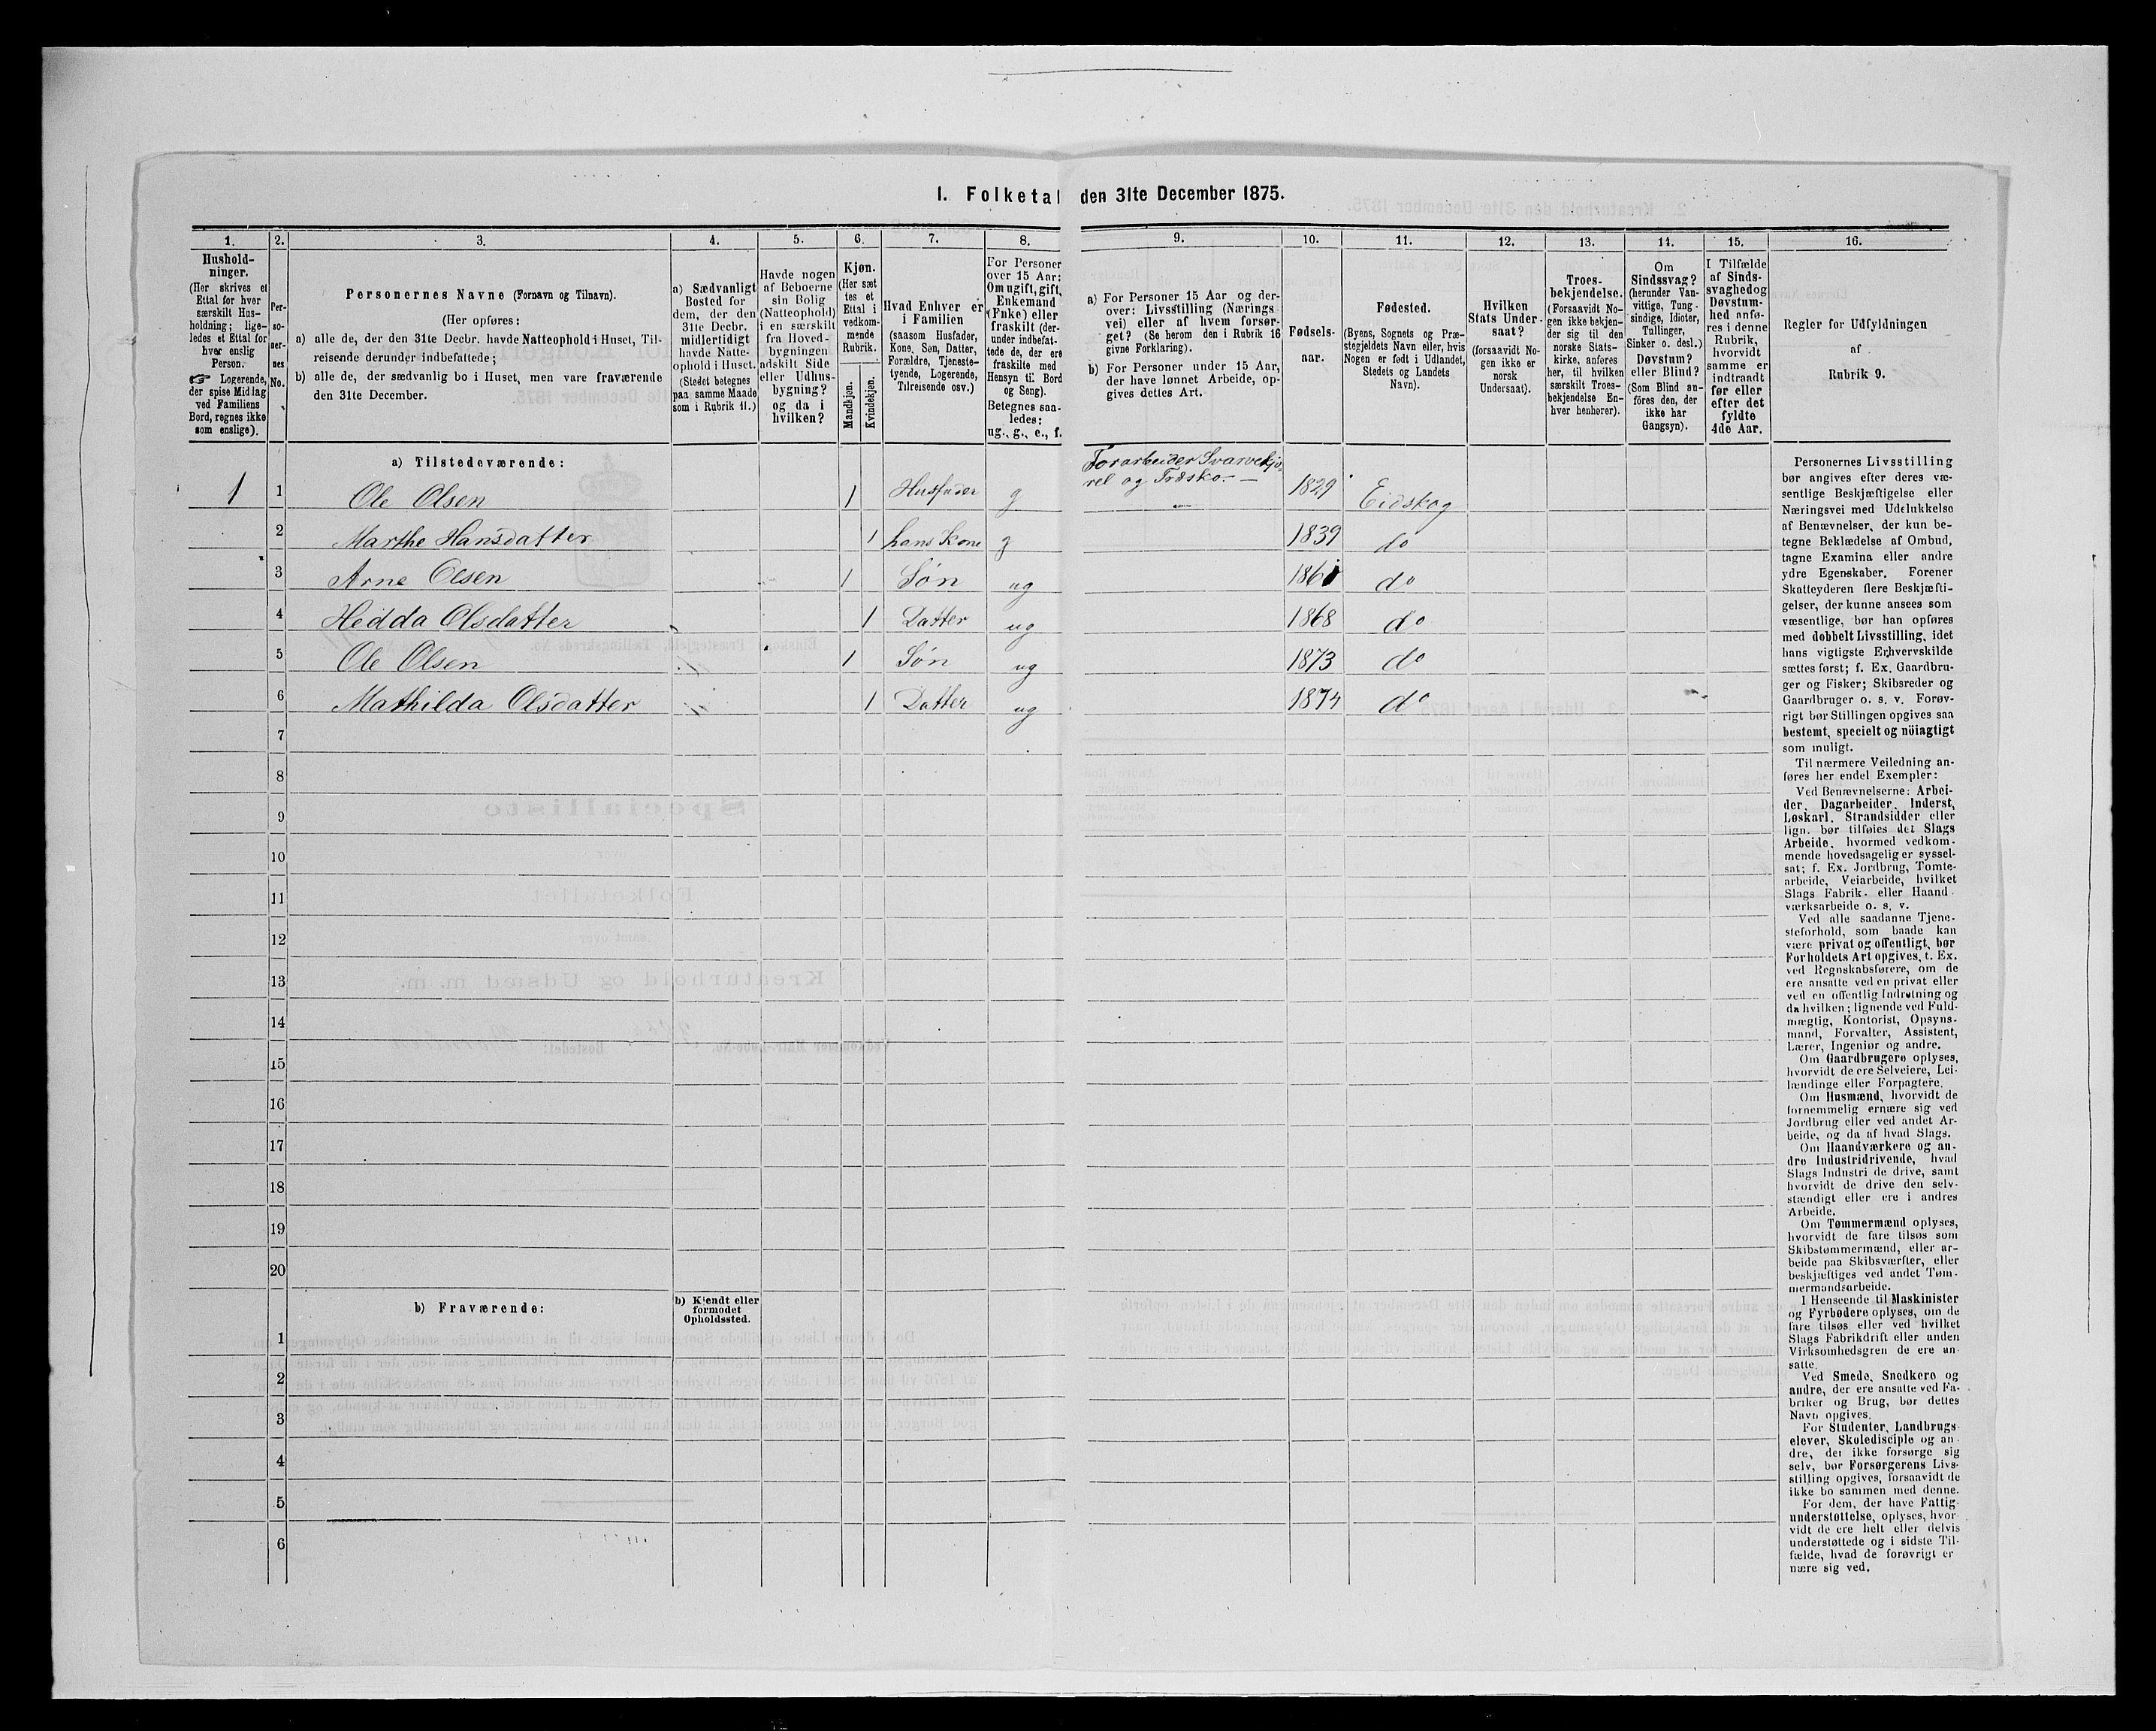 I. Folketal den 31te December 1875.
1. 2. 3. 4. 5. 6. 7. 8. 9. 10. 11. 12. 13. 14. 15. 16.
Hushold-
ninger.
(Her skrives et
Ettal for hver
særskilt Hus-
holdning; lige-
ledes et Ettal for
hver enslig
Person.
☞ Logerende,
der spise Middag
ved Familiens
Bord, regnes ikke
som enslige).
Per-
so-
ner-
nes
No.
Personernes Navne (Fornavn og Tilnavn).
(Her opføres:
a) alle de, der den 31te Decbr. havde Natteophold i Huset, Til-
reisende derunder indbefattede;
b) alle de, der sædvanlig bo i Huset, men vare fraværende
den 31te December.
a) Sædvanligt
Bosted for
dem, der den
31te Decbr.
midlertidigt
havde Natte-
ophold i Huset.
(Stedet betegnes
paa samme Maade
som i Rubrik 11.)
Havde nogen
af Beboerne
sin Bolig
(Natteophold)
i en særskilt
fra Hoved-
bygningen
adskilt Side
eller Udhus-
bygning?
og da i
hvilken?
Kjøn.
(Her sæt
tes et
Ettal i
vedkom-
mende
Rubrik.
Mandkjøn.
Kvindekjøn.
Hvad Enhver er
i Familien
(saasom Husfader,
Kone, Søn, Datter,
Forældre, Tjeneste-
tyende, Logerende,
Tilreisende osv.)
For Personer
over 15 Aar:
Om ugift, gift,
Enkemand
(Enke) eller
fraskilt (der-
under indbefat-
tede de, der ere
fraskilte med
Hensyn til Bord
og Seng).
Betegnes saa-
ledes:
ug., g., e., f.
a) For Personer 15 Aar og der-
over: Livsstilling (Nærings
vei) eller af hvem forsør-
get? (Se herom den i Rubrik 16
givne Forklaring).
b) For Personer under 15 Aar,
der have lønnet Arbeide, op-
gives dettes Art.
Fødsels-
aar.
Fødested.
(Byens, Sognets og Præ-
stegjeldets Navn eller, hvis
Nogen er født i Udlandet,
Stedets og Landets
Navn).
Hvilken
Stats Under-
saat?
(forsaavidt No-
gen ikke er
norsk
Undersaat).
Troes-
bekjendelse.
(Forsaavidt No-
gen ikke bekjen-
der sig til den
norske Stats-
kirke, anføres
her, til hvilken
særskilt Troes-
bekjendelse En-
hver henhører).
Om
Sindssvag?
(herunder Van-
vittige, Tung-
sindige, Idioter,
Tullinger,
Sinker o. desl.)
Døvstum?
eller Blind?
(Som Blind an-
föres den, der
ikke har
Gangsyn).
I Tilfælde
af Sinds-
svaghed og
Døvstum-
hed anfø-
res i denne
Rubrik,
hvorvidt
samme er
indtraadt
før eller
efter det
fyldte
4de Aar.
Regler for Udfyldningen
af
Rubrik 9.
a) Tilstedeværende:
1 1 Ole Olsen 1 Husfader g Forarbeider Svarvekjø-
rel og Træsko.— 1829 Eidskog
2 Marthe Hansdatter 1 hans Kone g 1839 do
3 Arne Olsen 1 Søn ug do
4 Hedda Olsdatter 1 Datter ug 1868 do
5 Ole Olsen 1 Søn ug 1873 do
6 Mathilda Olsdatter 1 Datter ug 1874 do
7
8
9
10
11
12
13
14
15
16
17
18
19
20
b) Fraværende:
b) Kjendt eller
formodet
Opholdssted.
1
2
3
4
5
6
Personernes Livsstilling
bør angives efter deres væ-
sentlige Beskjæftigelse eller
Næringsvei med Udelukkelse
af Benævnelser, der kun be-
tegne Beklædelse af Ombud,
tagne Examina eller andre
ydre Egenskaber. Forener
Skatteyderen flere Beskjæfti-
gelser, der kunne ansees som
væsentlige, bør han opføres
med dobbelt Livsstilling, idet
hans vigtigste Erhvervskilde
sættes først; f. Ex. Gaardbru-
ger og Fisker; Skibsreder og
Gaardbruger o. s. v. Forøv-
rigt bør Stillingen opgives saa
bestemt, specielt og nöiagtigt
som muligt.
Til nærmere Veiledning an-
føres her endel Exempler:
Ved Benævnelserne: Arbei-
der, Dagarbeider, Inderst,
Løskarl, Strandsidder eller
lign. bør tilføies det Slags
Arbeide, hvormed vedkom-
mende hovedsagelig er syssel-
sat; f. Ex. Jordbrug, Tomte-
arbeide, Veiarbeide, hvilket
Slags Fabrik- eller Haand-
værksarbeide o. s. v.
Ved alle saadanne Tjene-
steforhold, som baade kan
være privat og offentligt, bør
Forholdets Art opgives, f. Ex.
ved Regnskabsførere, om de
ere ansatte ved en privat eller
ved en offentlig Indretning og
da hvilken; lignende ved Fuld-
mægtig, Kontorist, Opsyns-
mand, Forvalter, Assistent,
Lærer, Ingeniør og andre.
Om Gaardbrugere oplyses,
hvorvidt de ere Selveiere, Lei-
lændinge eller Forpagtere.
Om Husmænd, hvorvidt de
fornemmelig ernære sig ved
Jordbrug eller ved andet Ar-
beide, og da af hvad Slags.
Om Haandværkere og an-
dre Industridrivende, hvad
Slags Industri de drive, samt
hvorvidt de drive den selv-
stændigt eller ere i andres
Arbeide.
Om Tømmermænd oplyses,
hvorvidt de fare tilsøs som
Skibstømmermænd, eller ar-
beide paa Skibsværfter, eller
beskjæftiges ved andet Tøm-
mermandsarbeide.
I Henseende til Maskinister
og Fyrbødere oplyses, om de
fare tilsøs eller ved hvilket
Slags Fabrikdrift eller anden
Virksomhedsgren de ere an-
satte.
Ved Smede, Snedkere og
andre, der ere ansatte ved Fa-
briker og Brug, bør dettes
Navn opgives.
For Studenter, Landbrugs-
elever, Skoledisciple og an-
dre, der ikke forsørge sig
selv, bør Forsørgerens Livs-
stilling opgives, forsaavidt de
ikke bo sammen med denne.
For dem, der have Fattig-
understøttelse, oplyses, hvor-
vidt de ere helt eller delvis
understøttede og i sidste Til-
fælde, hvad de forøvrigt er-
nære sig ved.